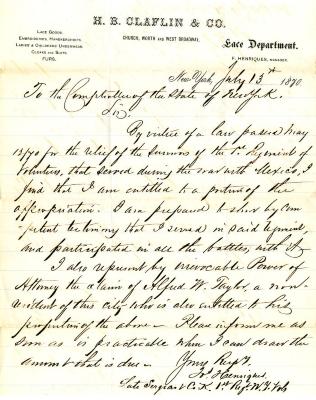 H. B. CLAFLIN & CO.
LACE GOODS
EMBROIDERIES, HANDKERCHIEFS
LADIES & CHILDRENS UNDERWEAR
CLOAKS AND SUITS
FURS.
CHURCH, WORTH AND WEST BROADWAY.
Lace Department.
F. HENRIQUES, MANAGER.
New York, July 13th 1870
To the Comptroller of the State of New York.
Sir.
By virtue of a law passed May
1870 for the relief of the survivors of the 1st Regiment of
Volunteers, that served during the war with Mexico, I
find that I am entitled to a portion of the
appropriation. I am prepared to show by com-
petent testimony that I served in said regiment,
and participated in all the battles, with it
I also represent by irrevocable Power of
Attorney the claim of Alfred W. Taylor, a non-
resident of this city who is also entitled to his
proportion of the above - Please inform me as
soon as is practicable when I can draw the
amount that is due -
Your Respt,
Henriques
Late Sergeant Co. K. 1st Regt. N.Y. Vols